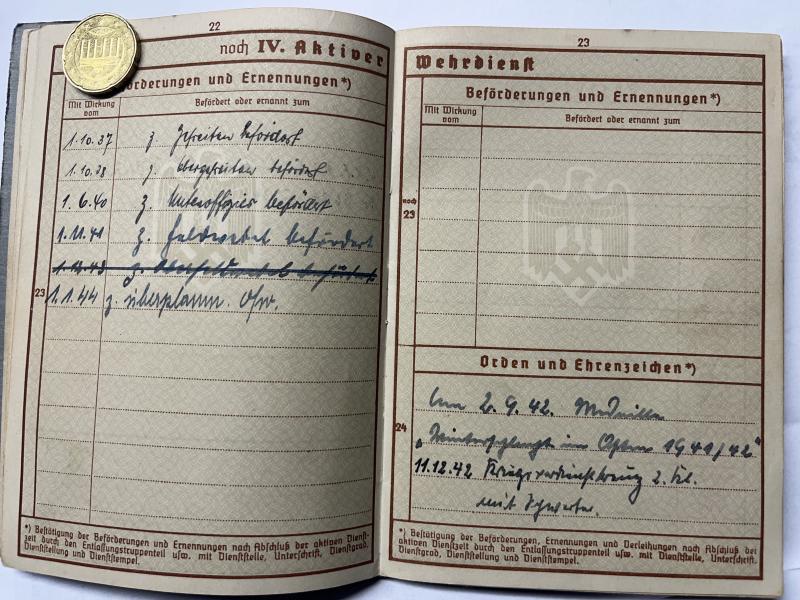 22
noch IV. Aktiver
Beförderungen und Ernennungen*)
Mit Wirkung vom
Befördert oder ernannt zum
1.10.37 z. Gefreiten befördert
1.10.38 z. Obergefreiten befördert
1.6.40 z. Unteroffizier befördert
1.11.41 z. Feldwebel befördert
1.12.43 z. Oberfeldwebel befördert
23 1.1.44 z. überplanm. Ofw.
*) Bestätigung der Beförderungen und Ernennungen nach Abschluß der aktiven Dienst-
zeit durch den Entlassungstruppenteil usw. mit Dienststelle, Unterschrift, Dienstgrad,
Dienststellung und Dienststempel.
23
Wehrdienst
Beförderungen und Ernennungen*)
Mit Wirkung vom
Befördert oder ernannt zum
noch
23
Orden und Ehrenzeichen*)
Am 2.9.42. Medaille
24
„Winterschlacht im Osten 1941/42"
11.12.42 Kriegsverdienstkreuz 2. Kl.
mit Schwerter.
*) Bestätigung der Beförderungen, Ernennungen und Verleihungen nach Abschluß der
aktiven Dienstzeit durch den Entlassungstruppenteil usw. mit Dienststelle, Unterschrift,
Dienstgrad, Dienststellung und Dienststempel.